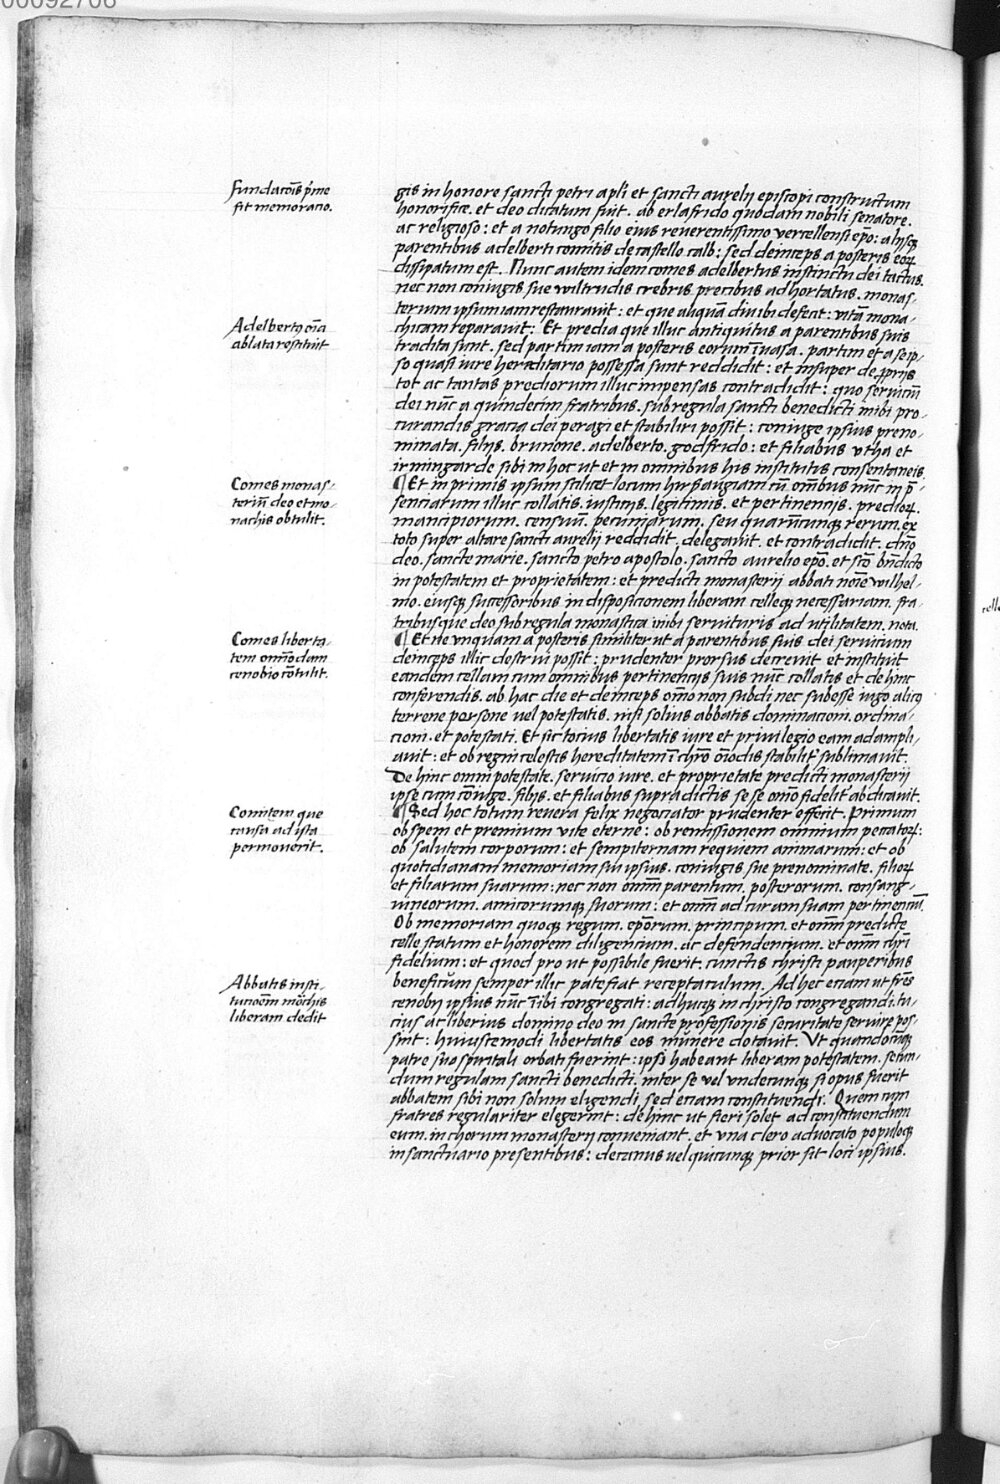 00092706
Fundatōis p̄me
fit memoratio.
gis in honore sancti petri apl̄i et sancti aurelij episcopi constructum
honorifice. et deo dicatum fuit. ab erlafrido quodam nobili senatore.
ac religioso: et a notungo filio eius reverentissimo vercellensi ep̄o: alijsq;
parentibus adelberti comitis de castello calb: sed deinceps a posteris eoꝝ
dissipatum est. Nunc autem idem comes adelbertus instinctu dei tactus.
nec non coniugis sue wiltrudis crebris precibus adhortatus. monas-
terium ipsum iam restauravit: et que aliquādiu ibi defecit: vitā mona-
Adelbertꝰ oīa
ablata restituit
chicam reparavit: Et predia que illuc antiquitus a parentibus suis
tradita sunt. sed partim iam a posteris eorum īuasa. partim et a se ip-
so quasi iure hereditario possessa sunt reddidit: et insuper de ꝓprijs
tot ac tantas prediorum illuc impensas contradidit: quo seruiciū
dei nūc a quindecim fratribus. sub regula sancti benedicti inibi pro-
curandis gracia dei peragi et stabiliri possit: coniuge ipsius preno-
minata. filijs. brunone. adelberto. godfrido: et filiabus vtha et
irmingarde sibi in hoc ut et in omnibus his institutis consentaneis.
Comes monas-
teriū deo et mo-
nachis obtulit.
¶ Et in primis ipsum scilicet locum hirsaugiam cū om̄ibus nūc in p̄-
senciarum illuc collatis. iusticijs. legitimis. et pertinencijs. predioꝝ.
mancipiorum. censuū. pecuniarum. seu quarūcunq; rerum. ex
toto super altare sancti aurelij reddidit. delegavit. et contradidit. dn̄o
deo. sancte marie. sancto petro apostolo. sancto aurelio ep̄o. et scō bn̄dicto
in potestatem et proprietatem: et predicti monasterij abbati noīe wilhel-
mo. eiusq; successoribus in disposicionem liberam celleq; necessariam. fra-
tribusque deo sub regula monastica inibi seruituris ad utilitatem. nota.
Comes liberta-
tem om̄imodam
cenobio cōtulit.
¶ Et ne vnquam a posteris similiter ut a parentibus suis dei seruicium
deinceps illic destrui possit: prudenter prorsus decrevit et instituit
eandem cellam cum omnibus pertinencijs suis nūc collatis et dehinc
conferendis. ab hac die et deinceps om̄ino non subdi nec subesse iugo alicꝰ
terrene persone uel potestatis. nisi solius abbatis dominacioni. ordina-
cioni. et potestati. Et sic tocius libertatis iure et privilegio eam adampli-
avit: et ob regni celestis hereditatem ī chr̄o oīmodis stabilit' sublimavit.
De hinc omni potestate. seruicio iure. et proprietate predicti monasterij
ipse cum cōiuge. filijs. et filiabus supradictis sese om̄ino fidelit' abdicavit.
Comitem que
causa ad ista
permoverit.
¶ Sed hoc totum revera felix negociator prudenter effecit. Primum
ob spem et premium vite eterne: ob remissionem omnium peccatoꝝ:
ob salutem corporum: et sempiternam requiem animarum: et ob
quotidianam memoriam sui ipsius. coniugis sue prenominate. filioꝝ
et filiarum suarum: nec non omniū parentum. posterorum. consang-
uineorum. amicorumq; suorum: et omniū ad curam suam pertinenciū.
Ob memoriam quoq; regum. ep̄orum. principum. et omniū predicte
celle statum et honorem diligencium. ac defendencium. et omniū chr̄i
fidelium: et quod pro ut possibile fuerit. cunctis christi pauperibus
Abbatis insti-
tucioēm mōchis
liberam dedit
beneficūm semper illic patefiat receptaculum. Ad hec eciam ut fr̄es
cenobij ipsius nūc ībi congregati: adhucq; in christo congregandi. tu-
cius ac liberius domino deo in sancte professionis securitate seruire pos-
sint: huiuscemodi libertatis eos munere dotavit. Ut quandocūq;
patre suo spiritali orbati fuerint: ipsi habeant liberam potestatem. secun-
dum regulam sancti benedicti. inter se vel vndecunq; si opus fuerit
abbatem sibi non solum eligendi, sed eciam constituendi. Quem cum
fratres regulariter elegerint: dehinc ut fieri solet ad constituendum
eum. in chorum monasterij conveniant. et vna clero advocato populoq;
in sanctuario presentibus: decanus uel quicunq; prior sit loci ipsius.